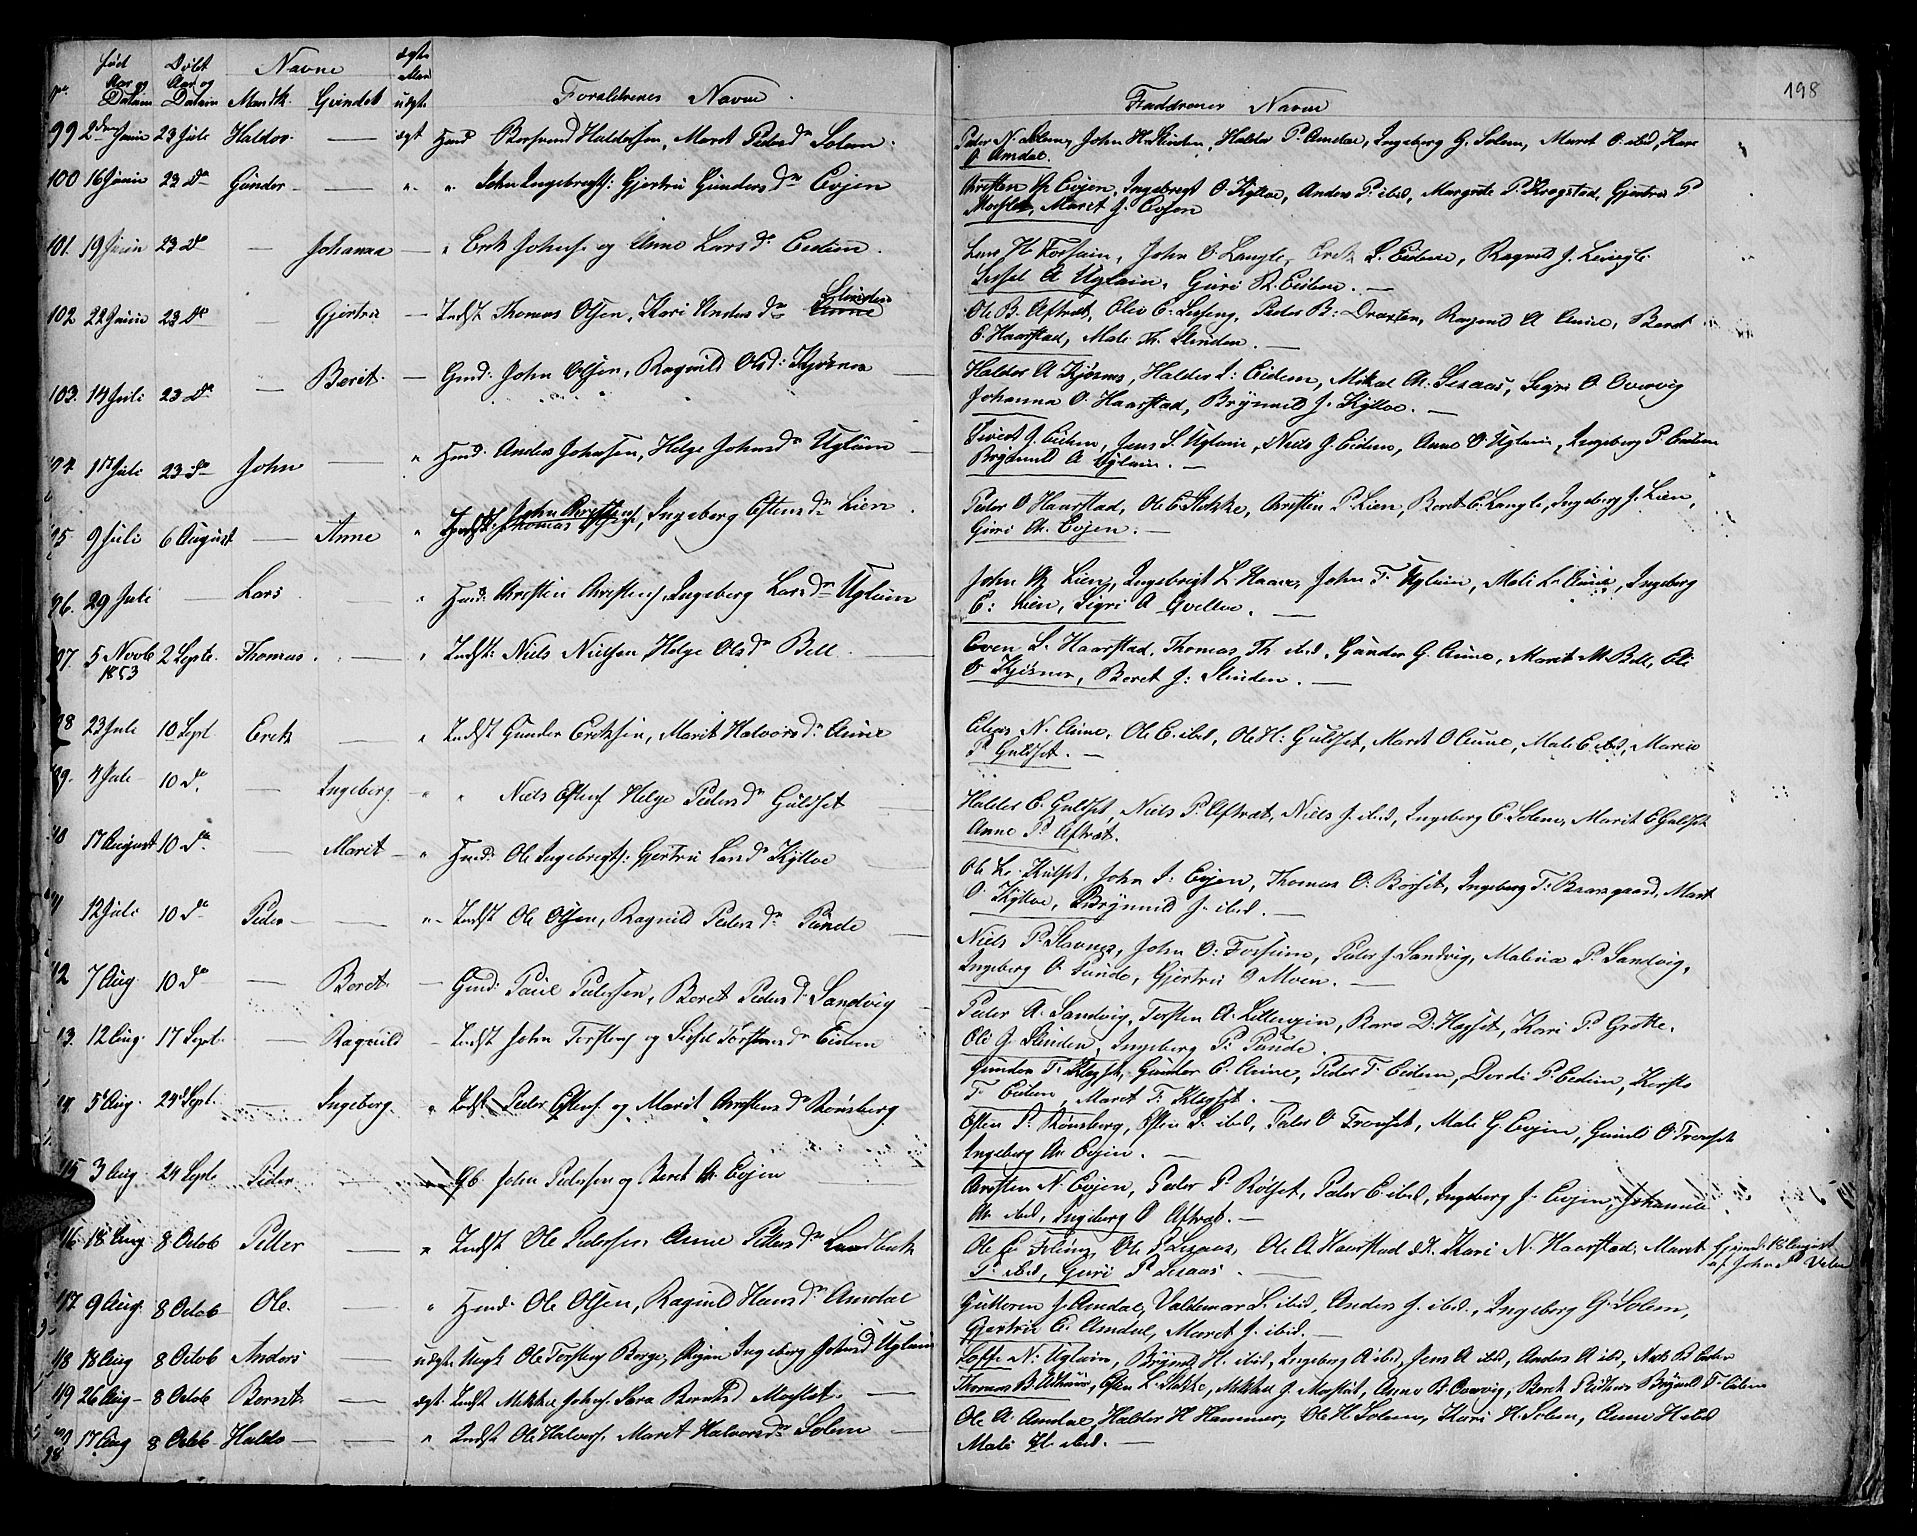 198
No. Fød Aar og Datum Døbt Aar og Datum Navne Mandk. Qvindek ægte eller uægte Forældrenes Navne Faddrenes Navne
99 2den Junie 23 Julie Haldor — ægt Hmd Haldorsen, Maret Pedersdr Solem.
Peder N. Solem, John H. Slinden, Haldor P. Amdal, Ingeborg G. Solem, Maret O. ibid, Kari
O Amdal.
100 16 Junie 23 Do Gunder — " " John Ingebrigts: Gjertru Gundersdr Evjen
Christen Evjen, Ingebrigt O. Kyllo, Anders P. ibid, Margrete P. Krogstad, Gjertru P
Moslet, Marit J. Evjen
101. 19 Junie 23 Do — Johanna — " Erik Johns. og Anne Larsdr Eidem.
Lars H. Forsum, John O. Langli, Erik L. Eidem, Ragnil J. Langli
Sissel A Uglum, Guri R. Eidem. —
102 22 Junie 23 Do — Gjertru — Indst Thomas Olsen, Kari Andersdr Slinden
Ole B. Aftret, Ole E. Krogstad, Peder B: Draxten, Ragnil A Aune, Beret
E. Haarstad, Mali Th. Slinden. —
103. 14 Juli 23 Do — Berit. — Gmd: John Olsen, Ragnild Olsd: Kjøsnes —
Haldor A Kjøsnes, Haldor L: Eidem, Mikal Sesaas, Sigri O. Overvig
Johanna O. Haarstad, Brynnild J. Kyllo. —
104. 1st Juli 23 do John — " Hmd: Anders Johnsen, Helge Johnsdr Uglum —
Sivert J. Eidem, Jens S. Uglum, Niels J. Eidem, Anne O Uglum, Ingeborg P. Eidem
Brynnild A Uglum. —
105 9 Juli 6 August — Anne " Indst: John Christens, Ingeborg Estensdr Lien.
Peder O Haarstad, Ole E Stokke, Christen P. Lien, Beret E. Langli, Ingeborg J. Lien,
Guri Ch. Evjen. —
106. 29 Juli — Lars — " Hmd: Christen Christens. Ingeborg Larsdr Uglum
John Lien, Ingebrigt L. Haave, John T. Uglum, Mali L. Aune, Ingeborg
E: Lien, Sigri A. Qvello. —
107. 5 Novb 1853 2 Septe. Thomas. — " Indst: Niels Nielsen, Helge Olsdr Bell. —
Even L. Haarstad, Thomas Th. ibid, Gunder G. Aune, Marit M. Bell, Eli
O Kjøsnes, Beret J: Slinden. —
108 23 Juli 10 Sept Erik — " Indst Gunder Eriksen, Marit Halvorsdr Aune
Elias N. Aune, Ole E. ibid, Ole H: Guldset, Maret O Aune, Mali E. ibid, Marit
P. Guldset. —
109. 4 Juli 10 do. — Ingeborg — " " Niels Estens Helge Pedersdr Guldset —
Haldor E. Guldset, Niels P. Aftret, Niels J. ibid, Ingeborg E. Solem, Marit E Guldset
Anne P. Aftret.
110 17 August 10 do. — Marit — " Hmd: Ole Ingebrigts: Gjertru Larsd Kyllo —
Ole L. Kulset, John J: Evjen, Thomas O: Borset, Ingeborg T: Baarsgaard, Marit
O. Kyllo, Brynnild J. ibid. —
111 12 Juli 10 Do Peder — " Indst Ole Olsen, Ragnild Pedersdr Punde —
Niels P. Stavnes, John O: Forsum, Peder J. Sandvig, Malena P. Sandvig,
Ingeborg O. Punde, Gjertru O Moen. —
112 7 Aug 10 do — Beret — Gmd: Paul Pedersen, Beret Pedersd: Sandvig —
Peder A. Sandvig, Torsten A. Lillevjen, Baro D: Hegset, Kari P. Grotte.
Ole J. Slinden, Ingeborg P. Punde.
113. 12 Aug. 17 Sept. — Ragnild — Indst John Torstens og Sissel Torstensdr Eidem
Gunder T. Klegset, Gunder E. Aune, Peder T. Eidem, Dordi P. Eidem, Kersto
T Eidem, Maret T. Klegset. —
114. 5t Aug. 24d Sept. — Ingeborg. " Indst Peder Estens. og Marit Christensdr Rønsberg
Esten P. Rønsberg, Esten L. ibid, Peder O Tronset, Mali G Evjen, Gunild O Tronset
Ingeborg Ch Evjen. —
115 3 Aug 24 Septe Peder — Gb: John Pedersen og Beret Ch Evjen
Christen N. Evjen, Peder P. Rolset, Peder E. ibid, Ingeborg J. Evjen, Johanna
Ch. ibid, Ingeborg O Aftret. —
116. 18 Aug 8 Octob Petter — " Indst Ole Pedersen Anne Pedersdr Sandbak
Ole E. Fløng, Ole P. Sesaas, Ole A Haarstad, Kari N. Haarstad, Maret
P. ibid, Guri P. Sesaas. —
Hjemd: 18 August
af John Velve
117. 9 Aug. 8 Octob Ole. — " Hmd: Ole Olsen, Ragnild Hansdr Amdal
Guttorm J. Amdal, Valdemar S. ibid, Anders J. ibid., Ingeborg G. Solem,
Gjertru E. Amdal, Maret J. ibid. —
118 18 Aug 8 Octob Anders — uægte Ungk Ole Torstens Berge, Pigen Ingeborg Johnsd Uglum
Loffe N: Uglum, Brynild H. ibid, Ingeborg A ibid, Jens A ibid, Anders A ibid, Niels P. Eidem
119 26 Aug — 8 Octob Bernt. — ægt. Indst Mikkel Johns. Sara Berntsd Moslet. —
Thomas B. Uthuus, Esten L. Stokke, Mikkel J. Moslet, Anne B. Overvig, Beret Brynild T. Eidem
120 17 Aug 8 Octob Haldo — " Indst Ole Halvors. Maret Halvorsdr Solem —
Ole A. Amdal, Haldor H Hammer, Ole H. Solem, Kari H. Solem, Anne H. ibid
Mali H. ibid. —